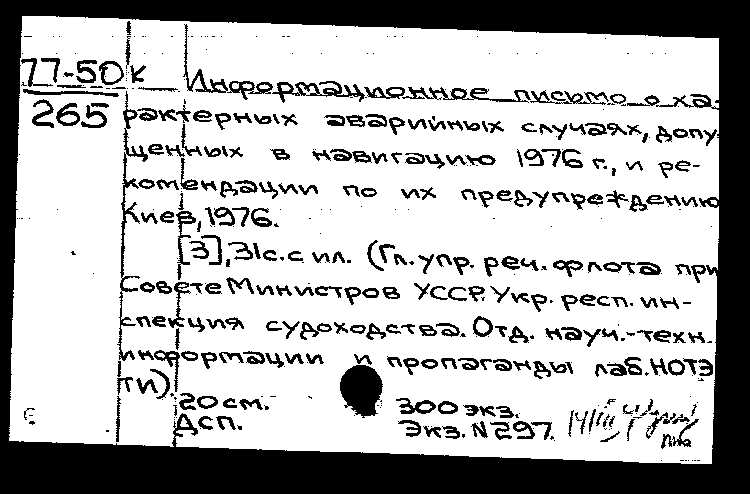 77-50 к Информационное письмо о ха-
265 рактерных аварийных случаях, допу
щенных в навигацию 1976 г., и ре-
комендации по их предупреждению
Киев, 1976.
[3], 31с. с ил. (Гл. упр. реч. флота при
Совете Министров УССР. Укр. респ. ин-
спекция судоходства. Отд. науч.-техн.
информации и пропаганды лаб. НОТЭ
ТИ).
20 см. 300 экз.
Дсп. Экз. N 297.